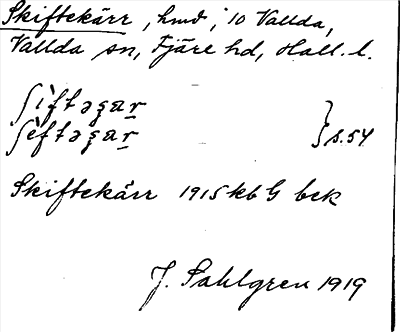 Skiftekärr, hmd, i 10 Vallda,
Vallda sn, Fjäre hd, Hall. l.
ʃìftəʂar
ʃèftəʂar } s. 54
Skiftekärr 1915 kb G bck
J. Sahlgren 1919